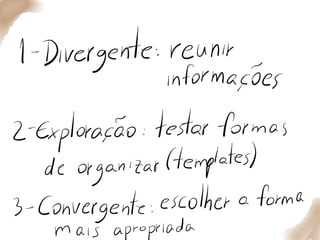 1-Divergente: reunir
informações
2-Exploração: testar formas
de organizar (templates)
3-Convergente: escolher a forma
mais apropriada